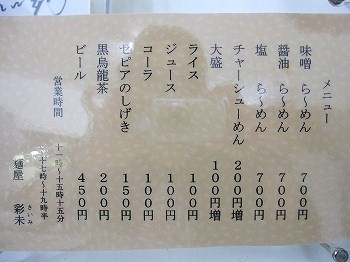 メニュー
味噌 ら〜めん 700円
醤油 ら〜めん 700円
塩 ら〜めん 700円
チャーシューめん 200円増
大盛 100円増
ライス 100円
ジュース 100円
コーラ 100円
セピアのしげき 150円
黒烏龍茶 200円
ビール 450円
営業時間 十一時〜十五時十五分
十七時〜十九時半
麺屋 彩未
さいみ